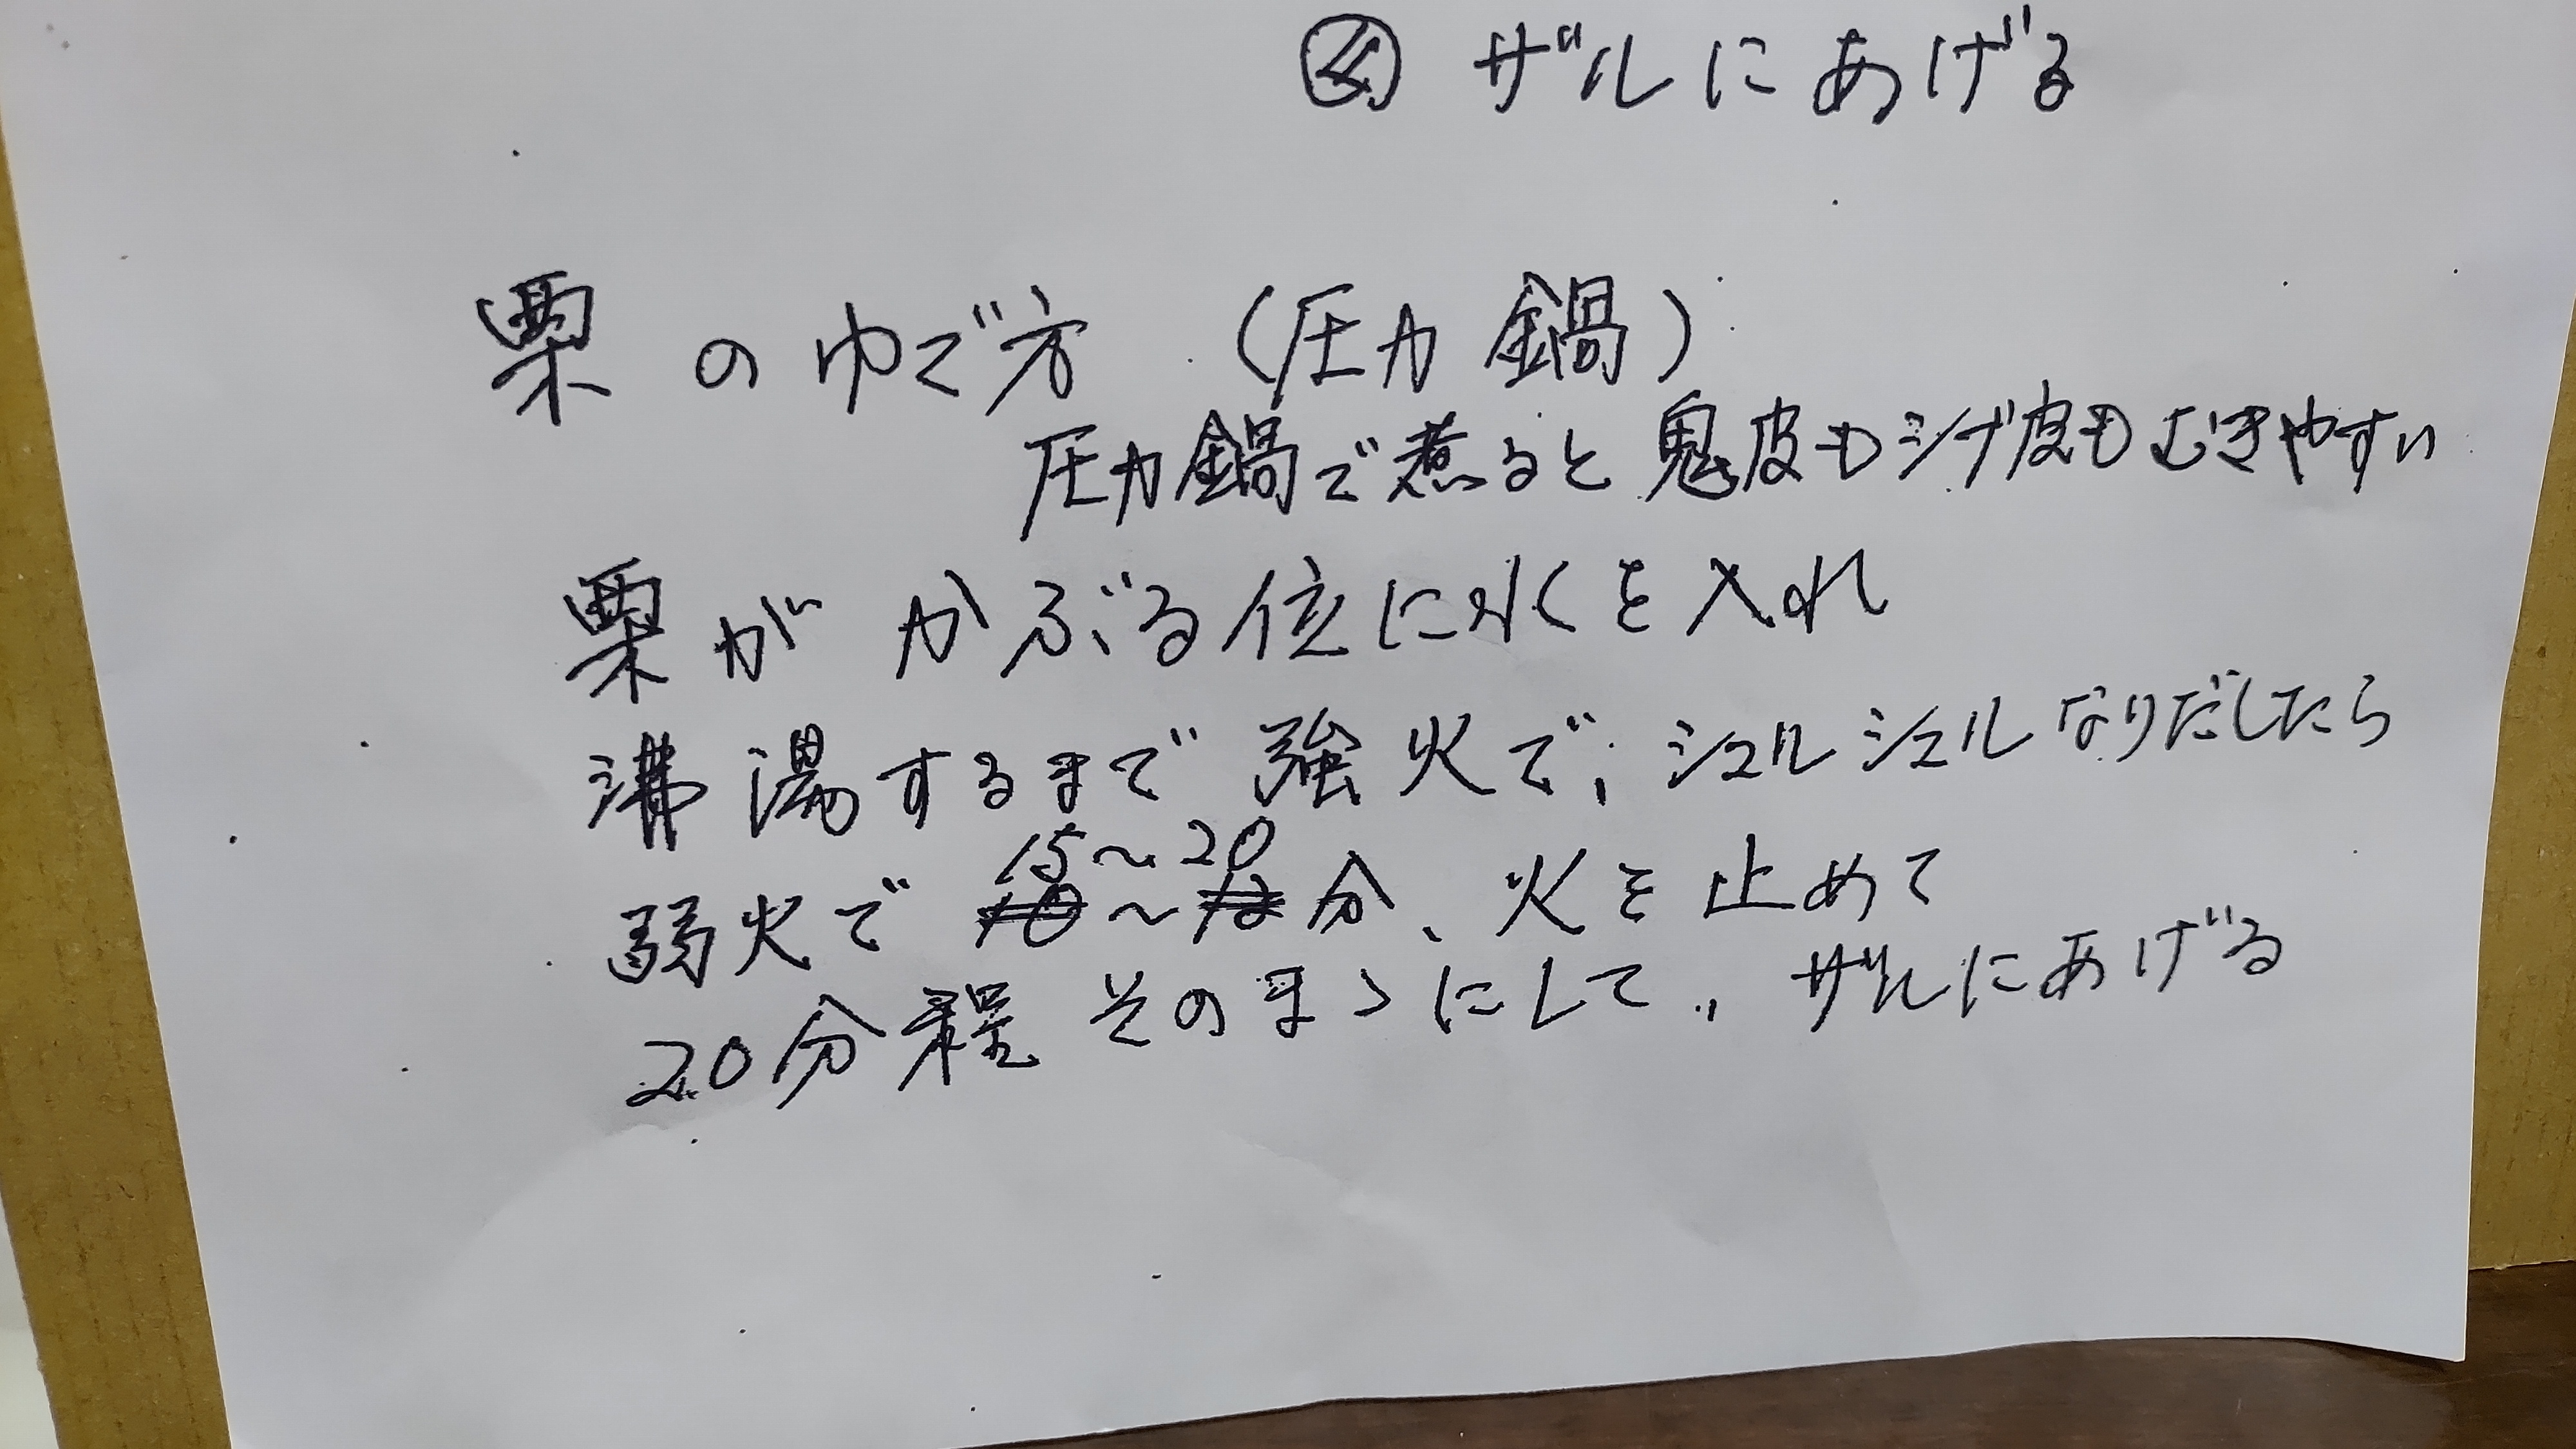 ④ ザルにあげる
栗のゆで方 (圧力鍋)
圧力鍋で煮ると鬼皮もシブ皮もむきやすい
栗がかぶる位に水を入れ
沸湯するまで強火で、シュルシュルなりだしたら
15〜20
弱火で 10〜12分、火を止めて
20分程そのまゝにして、ザルにあげる